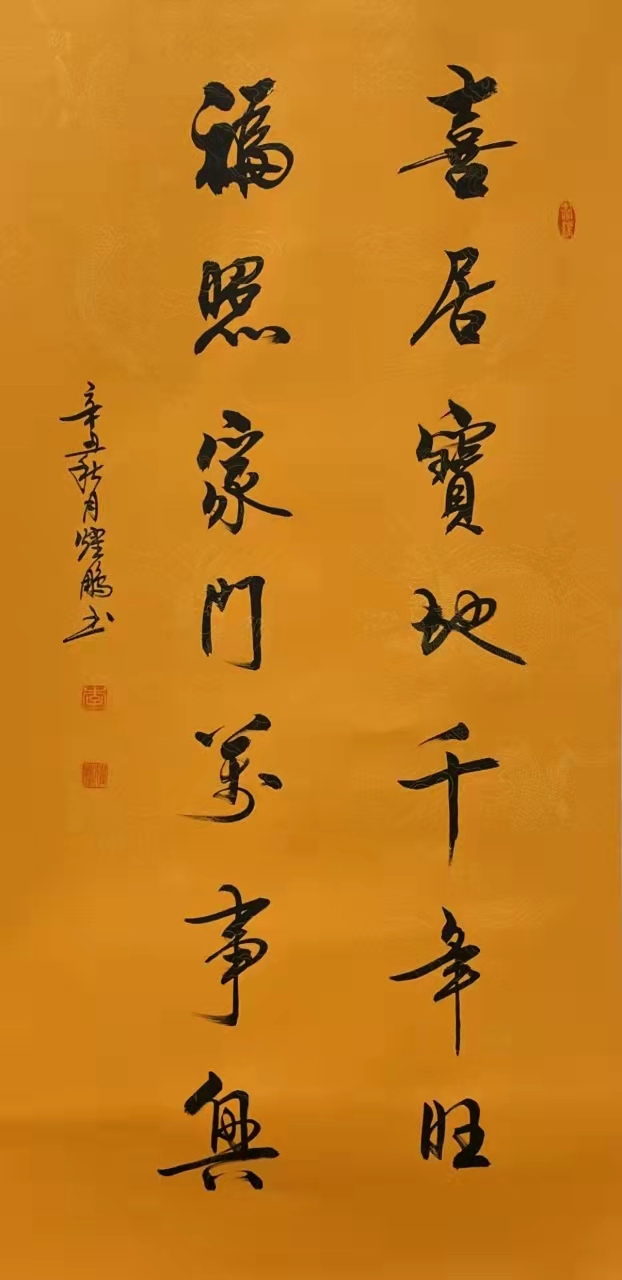 喜居寶地千年旺
福照家門萬事興
辛丑秋月耀鵬书